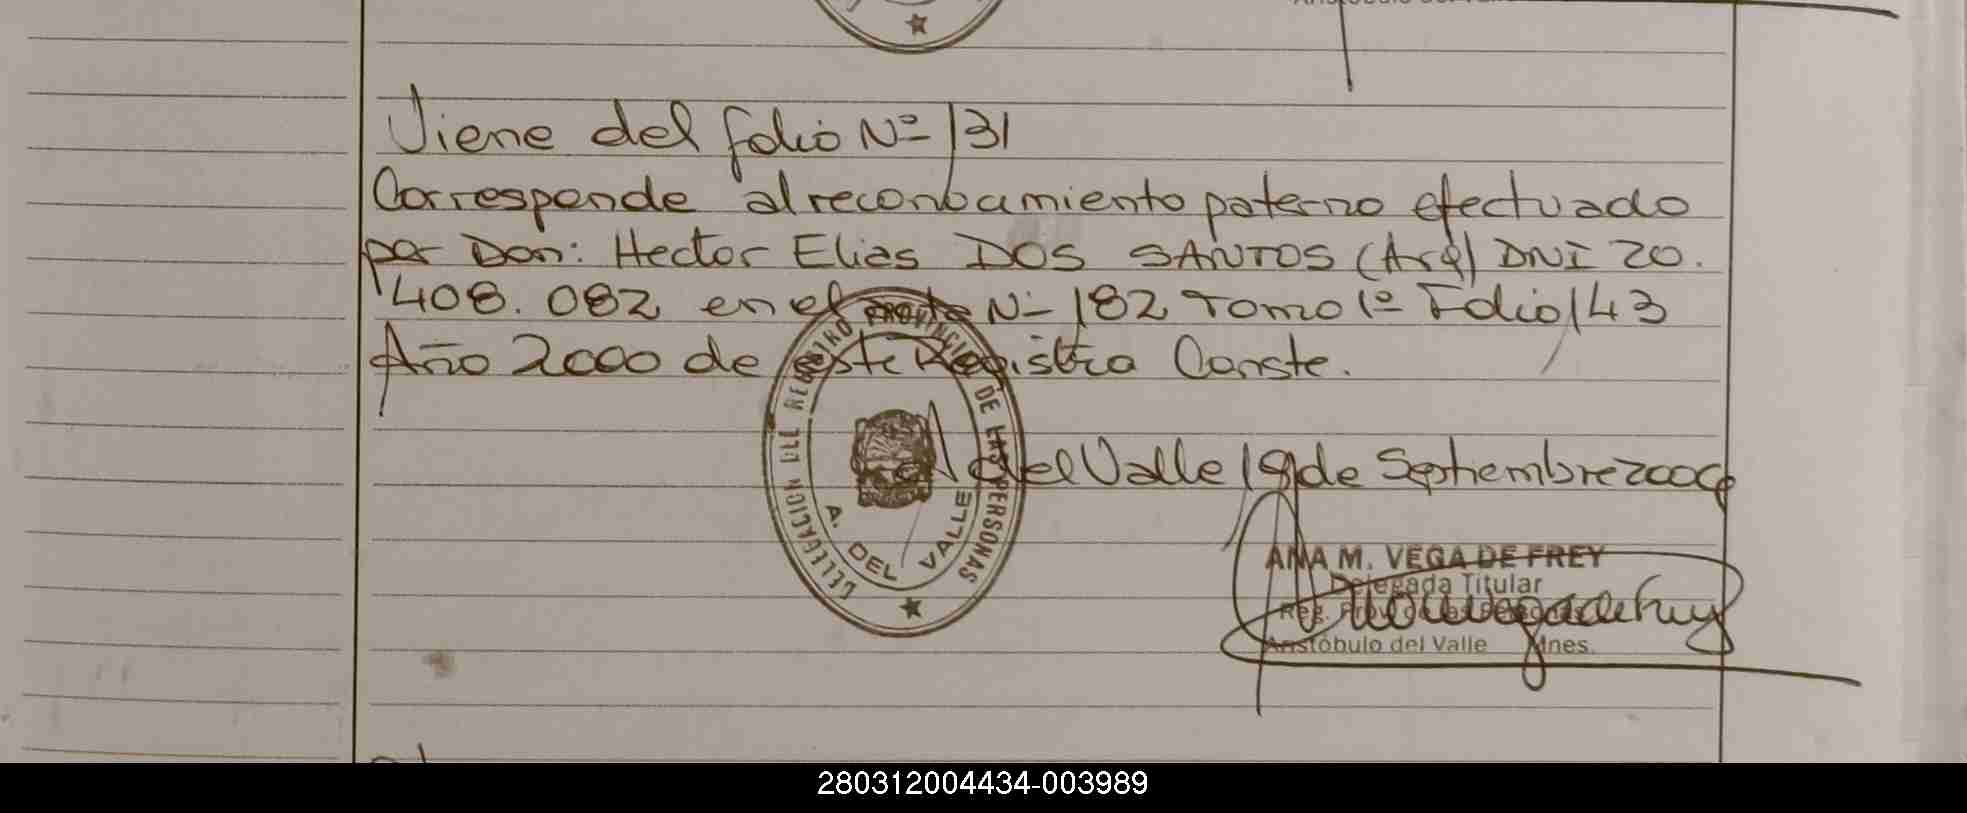 Viene del folio Nº 131
Corresponde al reconocimiento paterno efectuado
por Don: Hector Elias DOS SANTOS (Arg) DNI 20.
408.082 en el acta Nº 182 Tomo 1º Folio 143
Año 2000 de este Registro Conste.
A. del Valle 19 de Septiembre 2000
DELEGACION DEL REGISTRO PROVINCIAL DE LAS PERSONAS
A. DEL VALLE
ANA M. VEGA DE FREY
Delegada Titular
Reg. Prov. de las Personas
Aristóbulo del Valle Mnes.
280312004434-003989